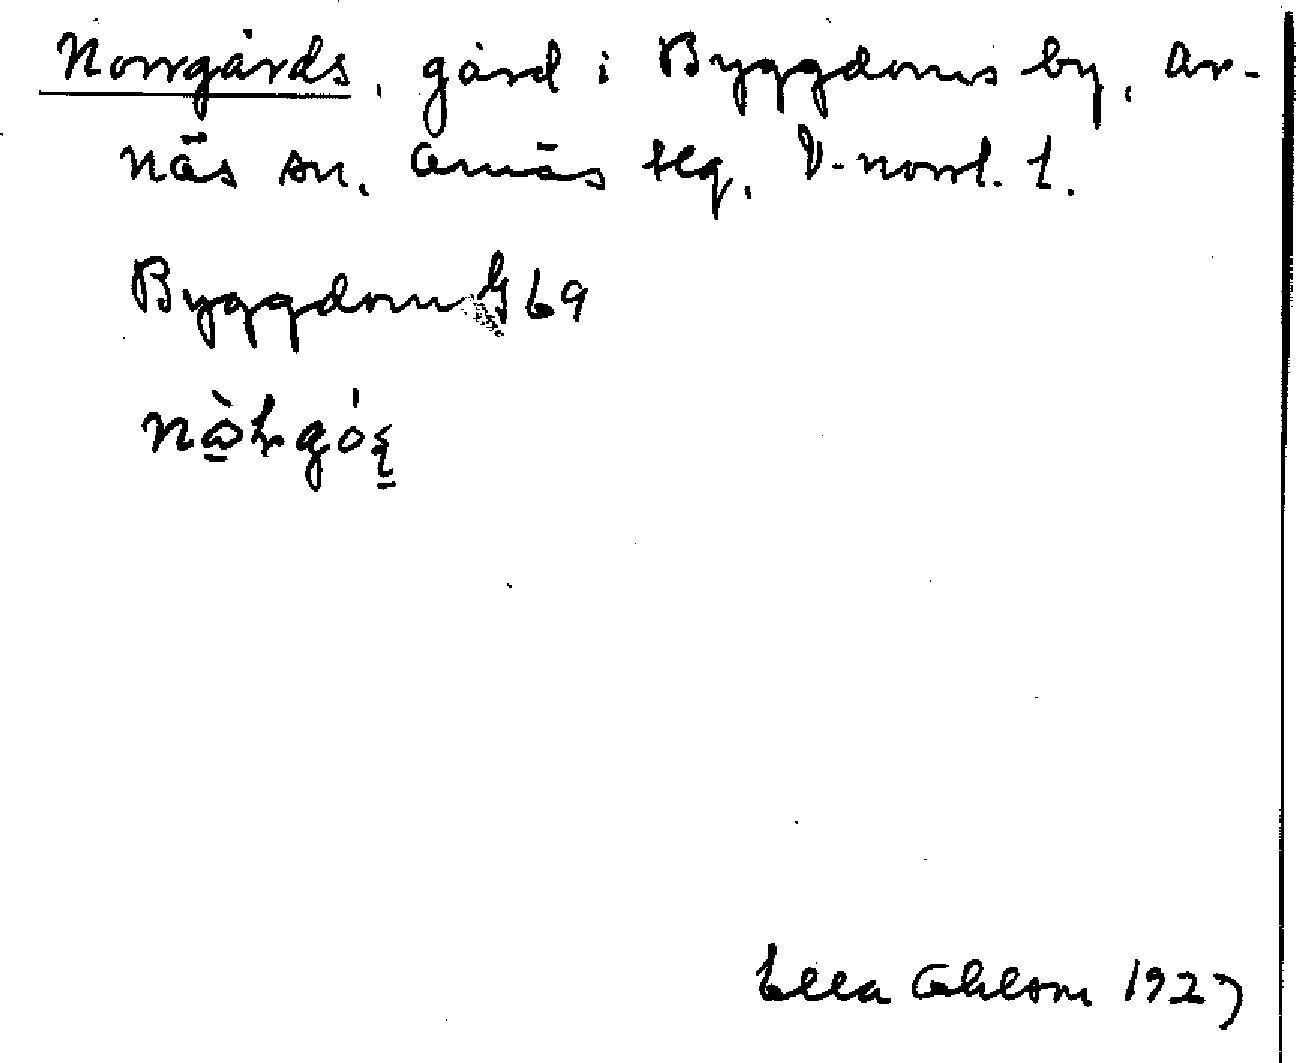 Norrgårds, gård i Byggdoms by, Ar-
näs sn. Arnäs tlg. V-norrl. l.
Byggdom G 69
Ella Ohlson 1927